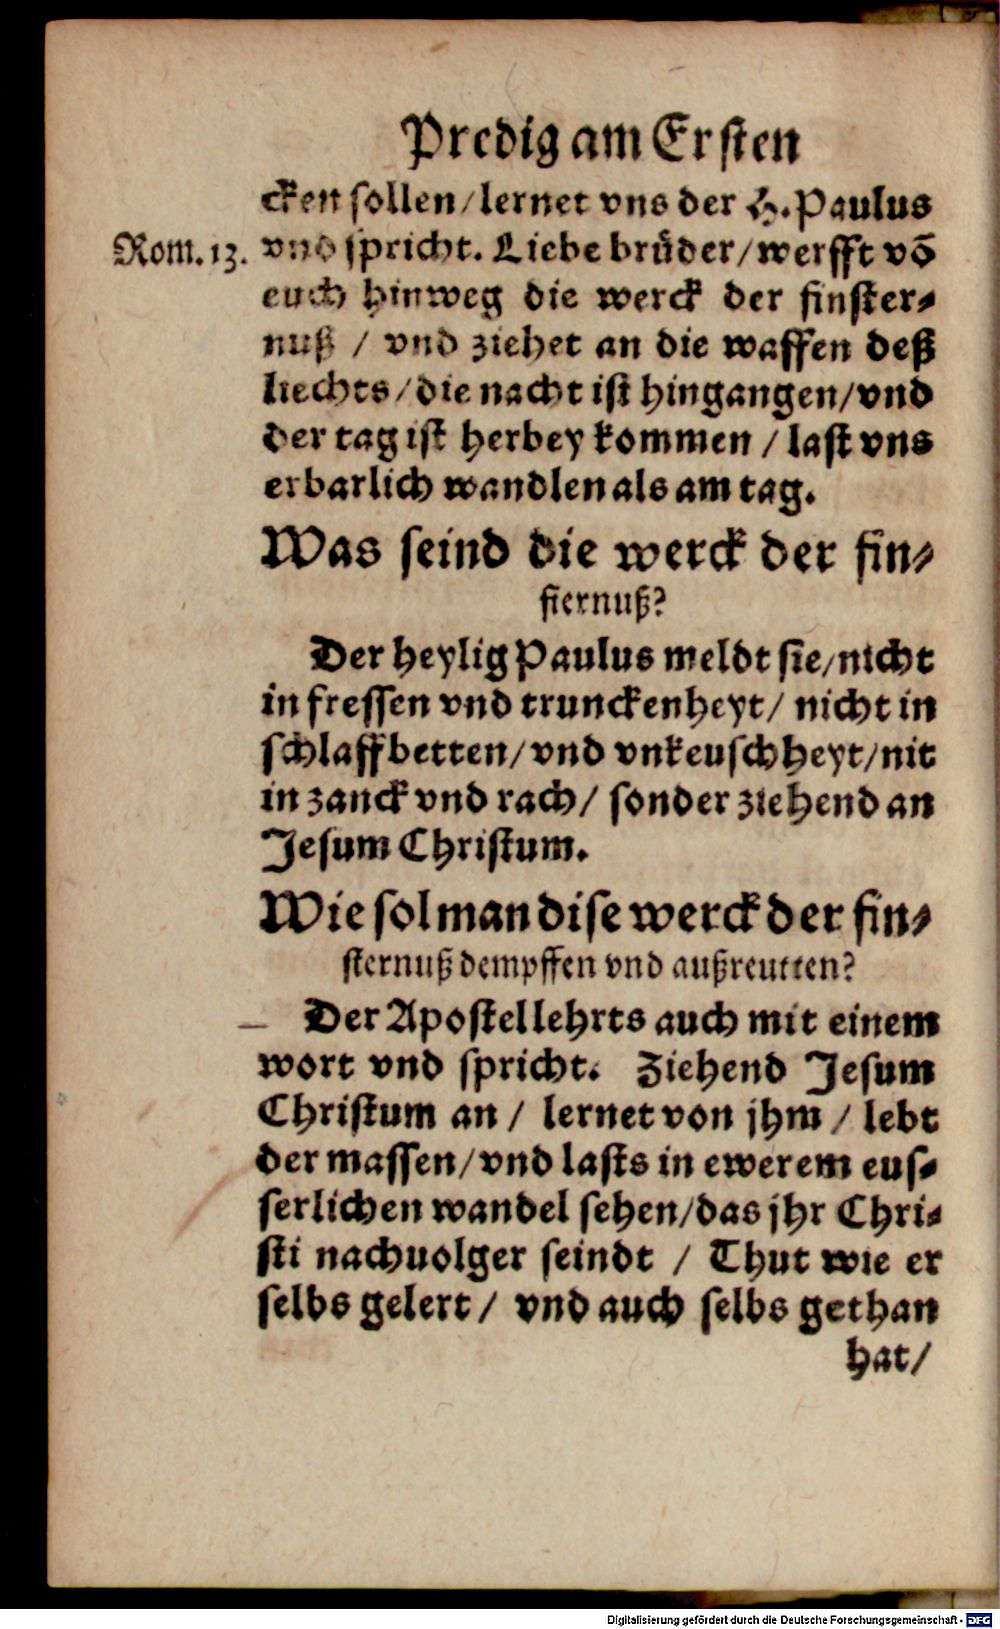 Predig am Ersten
cken sollen/lernet vns der H. Paulus
Rom. 13. vnd spricht. Liebe brůder/werfft võ
euch hinweg die werck der finster⸗
nuß / vnd ziehet an die waffen deß
liechts/die nacht ist hingangen/vnd
der tag ist herbey kommen / last vns
erbarlich wandlen als am tag.
Was seind die werck der fin⸗
sternuß?
Der heylig Paulus meldt sie/nicht
in fressen vnd trunckenheyt/ nicht in
schlaffbetten/vnd vnkeuschheyt/nit
in zanck vnd rach/ sonder ziehend an
Jesum Christum.
Wie sol man dise werck der fin⸗
sternuß dempffen vnd außreutten?
Der Apostel lehrts auch mit einem
wort vnd spricht. Ziehend Jesum
Christum an / lernet von jhm / lebt
der massen/vnd lasts in ewerem eus⸗
serlichen wandel sehen/das jhr Chri⸗
sti nachuolger seindt / Thut wie er
selbs gelert / vnd auch selbs gethan
hat/
Digitalisierung gefördert durch die Deutsche Forschungsgemeinschaft - DFG